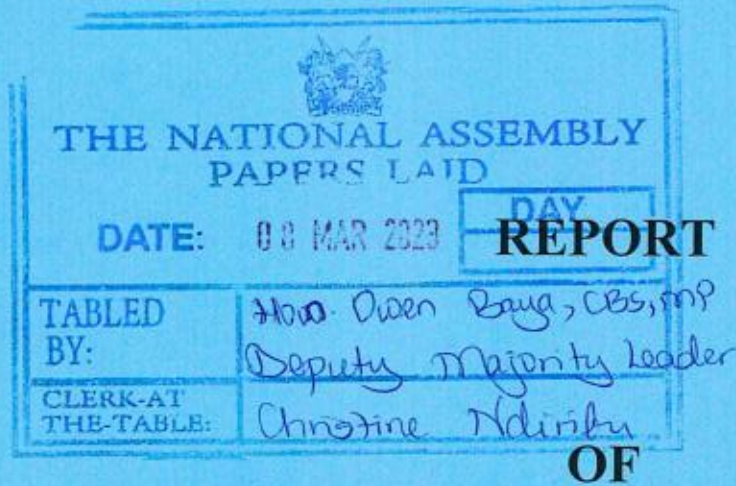 THE NATIONAL ASSEMBLY
PAPERS LAID
DATE: MAR 2023 DAY
REPORT
TABLED BY: Hon. Owen Baya, CBS, MP
Deputy Majority Leader
CLERK-AT THE-TABLE: Christine
OF